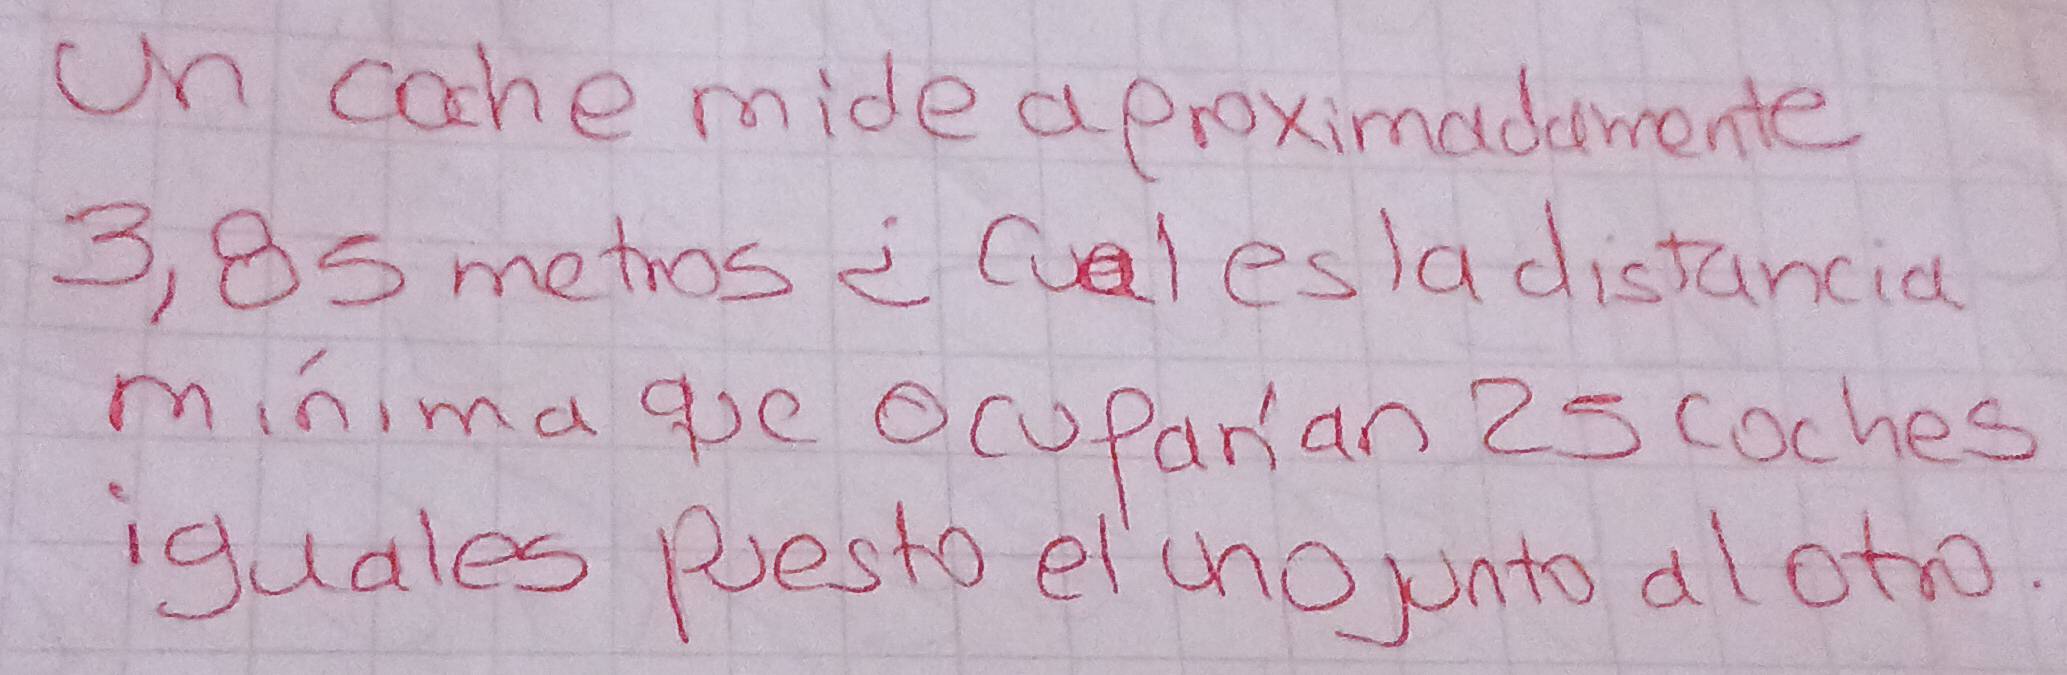 Un coche mide aproximadamente
3,85 metros ¿ Cual es la distancia
mínima que ocuparían 25 coches
iguales puesto el uno junto al otro.